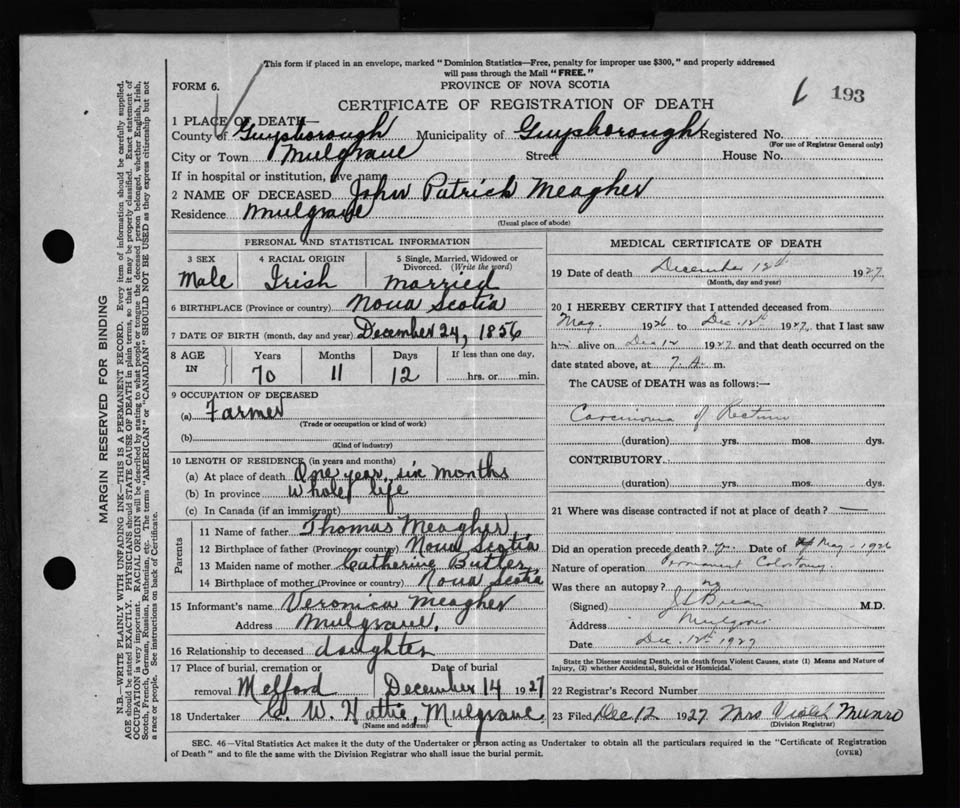 This form if placed in an envelope, marked "Dominion Statistics—Free, penalty for improper use $300," and properly addressed
will pass through the Mail "FREE."
FORM 6.
PROVINCE OF NOVA SCOTIA
CERTIFICATE OF REGISTRATION OF DEATH
193
1 PLACE OF DEATH—
County of Guysborough Municipality of Guysborough Registered No.
(For use of Registrar General only)
City or Town Mulgrave Street House No.
If in hospital or institution, give name
2 NAME OF DECEASED John Patrick Meagher
Residence Mulgrave
(Usual place of abode)
PERSONAL AND STATISTICAL INFORMATION
3 SEX 4 RACIAL ORIGIN 5 Single, Married, Widowed or
Divorced. (Write the word)
Male Irish Married
6 BIRTHPLACE (Province or country) Nova Scotia
7 DATE OF BIRTH (month, day and year) December 24, 1856
8 AGE IN Years Months Days If less than one day,
70 11 12 hrs. or min.
9 OCCUPATION OF DECEASED
(a) Farmer
(Trade or occupation or kind of work)
(b)
(Kind of industry)
10 LENGTH OF RESIDENCE (in years and months)
(a) At place of death One year, six months
(b) In province Whole life
(c) In Canada (if an immigrant)
Parents
11 Name of father Thomas Meagher
12 Birthplace of father (Province or country) Nova Scotia
13 Maiden name of mother Catharine Butler
14 Birthplace of mother (Province or country) Nova Scotia
15 Informant's name Veronica Meagher
Address Mulgrave.
16 Relationship to deceased daughter
17 Place of burial, cremation or Date of burial
removal Melford December 14 1927
18 Undertaker C. W. Mulgrave.
(Name and address)
MEDICAL CERTIFICATE OF DEATH
19 Date of death December 12th 1927
(Month, day and year)
20 I HEREBY CERTIFY that I attended deceased from
May 1926 to Dec. 12th 1927, that I last saw
him alive on Dec 12 1927 and that death occurred on the
date stated above, at 7 A. m.
The CAUSE of DEATH was as follows:—
Carcinoma of Rectum
(duration) yrs. mos. dys.
CONTRIBUTORY.
(duration) yrs. mos. dys.
21 Where was disease contracted if not at place of death? —
Did an operation precede death? Date of May - 1926
Nature of operation Permanent Colostomy
Was there an autopsy? no
(Signed) M.D.
Address Mulgrave
Date Dec. 12th 1927
State the Disease causing Death, or in death from Violent Causes, state (1) Means and Nature of
Injury, (2) whether Accidental, Suicidal or Homicidal.
22 Registrar's Record Number
23 Filed Dec 12 1927 Mrs Violet Munro
(Division Registrar)
SEC. 46—Vital Statistics Act makes it the duty of the Undertaker or person acting as Undertaker to obtain all the particulars required in the "Certificate of Registration
of Death" and to file the same with the Division Registrar who shall issue the burial permit.
(OVER)
MARGIN RESERVED FOR BINDING
N.B.—WRITE PLAINLY WITH UNFADING INK—THIS IS A PERMANENT RECORD. Every item of information should be carefully supplied.
AGE should be stated EXACTLY. PHYSICIANS should STATE CAUSE OF DEATH in plain terms, so that it may be properly classified. Exact statement of
OCCUPATION is very important. RACIAL ORIGIN will be described by stating to what people or tongue the deceased person belonged, whether English, Irish,
Scotch, French, German, Russian, Ruthenian, etc. The terms "AMERICAN" or "CANADIAN" SHOULD NOT BE USED as they express citizenship but not
a race or people. See instructions on back of Certificate.